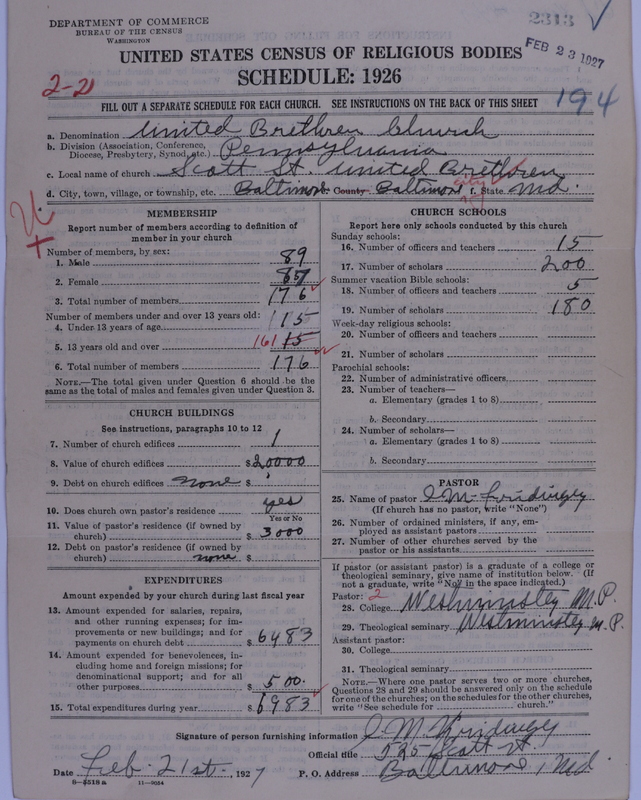 DEPARTMENT OF COMMERCE
BUREAU OF THE CENSUS
WASHINGTON
2313
FEB 23 1927
UNITED STATES CENSUS OF RELIGIOUS BODIES
SCHEDULE: 1926
2-21
194
FILL OUT A SEPARATE SCHEDULE FOR EACH CHURCH. SEE INSTRUCTIONS ON THE BACK OF THIS SHEET
a. Denomination United Brethren Church
b. Division (Association, Conference, Diocese, Presbytery, Synod, etc.) Pennsylvania
c. Local name of church Scott St. United Brethren
d. City, town, village, or township, etc. Baltimore e. County Baltimore city f. State Md.
MEMBERSHIP
Report number of members according to definition of
member in your church
Number of members, by sex:
1. Male 89
2. Female 87
3. Total number of members 176
Number of members under and over 13 years old:
4. Under 13 years of age 15
5. 13 years old and over 161
6. Total number of members 176
NOTE.—The total given under Question 6 should be the
same as the total of males and females given under Question 3.
CHURCH BUILDINGS
See instructions, paragraphs 10 to 12
7. Number of church edifices 1
8. Value of church edifices $20000
9. Debt on church edifices none $
10. Does church own pastor's residence yes
Yes or No
11. Value of pastor's residence (if owned by
church) $ 3000
12. Debt on pastor's residence (if owned by
church) none $
EXPENDITURES
Amount expended by your church during last fiscal year
13. Amount expended for salaries, repairs,
and other running expenses; for im-
provements or new buildings; and for
payments on church debt $ 6483
14. Amount expended for benevolences, in-
cluding home and foreign missions; for
denominational support; and for all
other purposes $ 500.
15. Total expenditures during year $ 6983
CHURCH SCHOOLS
Report here only schools conducted by this church
Sunday schools:
16. Number of officers and teachers 15
17. Number of scholars 200
Summer vacation Bible schools:
18. Number of officers and teachers 5
19. Number of scholars 180
Week-day religious schools:
20. Number of officers and teachers
21. Number of scholars
Parochial schools:
22. Number of administrative officers
23. Number of teachers—
a. Elementary (grades 1 to 8)
b. Secondary
24. Number of scholars—
a. Elementary (grades 1 to 8)
b. Secondary
PASTOR
25. Name of pastor
(If church has no pastor, write "None")
26. Number of ordained ministers, if any, em-
ployed as assistant pastors
27. Number of other churches served by the
pastor or his assistants
If pastor (or assistant pastor) is a graduate of a college or
theological seminary, give name of institution below. (If
not a graduate, write "No" in the space indicated.)
Pastor: 2
28. College Westminster M.P.
29. Theological seminary Westminster M.P.
Assistant pastor:
30. College
31. Theological seminary
NOTE.—Where one pastor serves two or more churches,
Questions 28 and 29 should be answered only on the schedule
for one of the churches; on the schedules for the other churches,
write "See schedule for church."
Signature of person furnishing information
Official title 525 Scott St
Date Feb. 21st, 1927 P. O. Address Baltimore, Md.
8-4518 a 11-9054